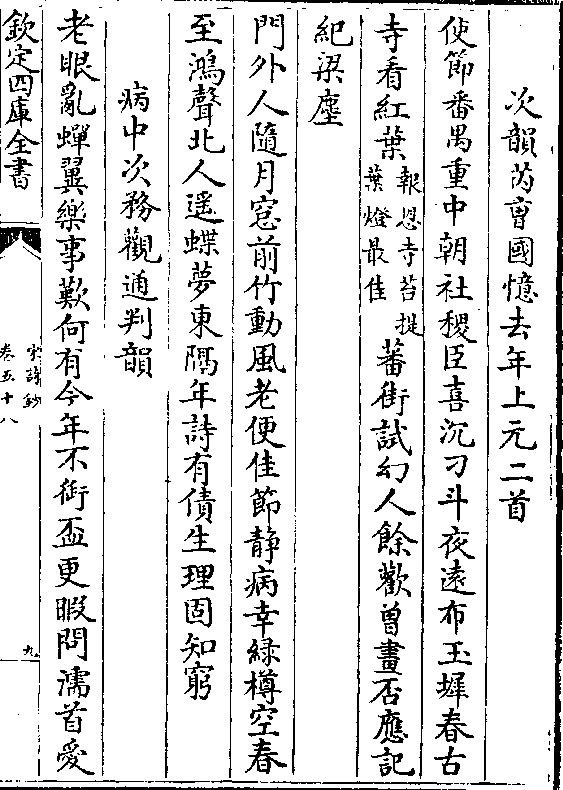 次韻芮𡩋國憶去年上元二首
使節番禺重中朝社稷臣喜沉刁斗夜遠布玉墀春古
寺看紅葉報恩寺苔提葉燈最佳蕃街試幻人餘歡曽畫否應記
紀梁塵
門外人隨月窓前竹動風老便佳節静病幸緑樽空春
至鴻聲北人遥蝶夢東隔年詩有債生理固知窮
病中次務觀通判韻
老眼亂蟬翼樂事歎何有今年不銜盃更暇問濡首愛
欽定四庫全書
宋詩鈔
卷五十八
九